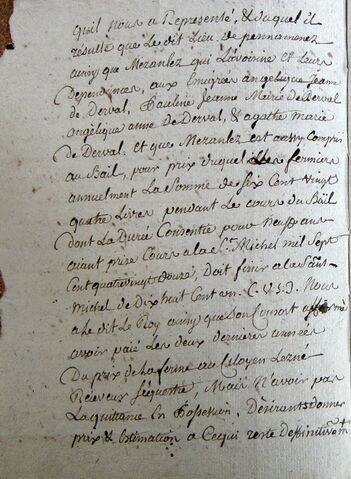 quil nous a Representé, & duquel il
résulte que Le dit Lieu de pennamenez
ainsy que Mezanlez qui L'avoinne et Leurs
Dependences, aux Emigrées angelique Jeanne
de Derval, Pauline Jeanne Marie de Derval
angélique anne de Derval, & agathe marie
de Derval, et que Mezanlez est aussy Compris
au Bail, pour prix duquel Les fermiers
annuelment La Somme de Six Cent vingt
quatre Livres pendant Le cours du Bail
dont La Durée Consentie pour Neuf ans
aiant prise Cours a la St Michel mil Sept
Cent quatrevingt Douze, Doit finir a la Saint
Michel de Dix huit Cent un. C. V. S. J. Nous
a Le dit Le Roy ainsy que Son Consort affirmé
avoir paié Les deux dernieres années
Du prix de La ferme au Citoyen Lezne
Receveur Sequestre, Mais N'avoir pas
La quittance En Possession, Désirants donner
prix & Estimation a Ce qui reste deffinitivemt